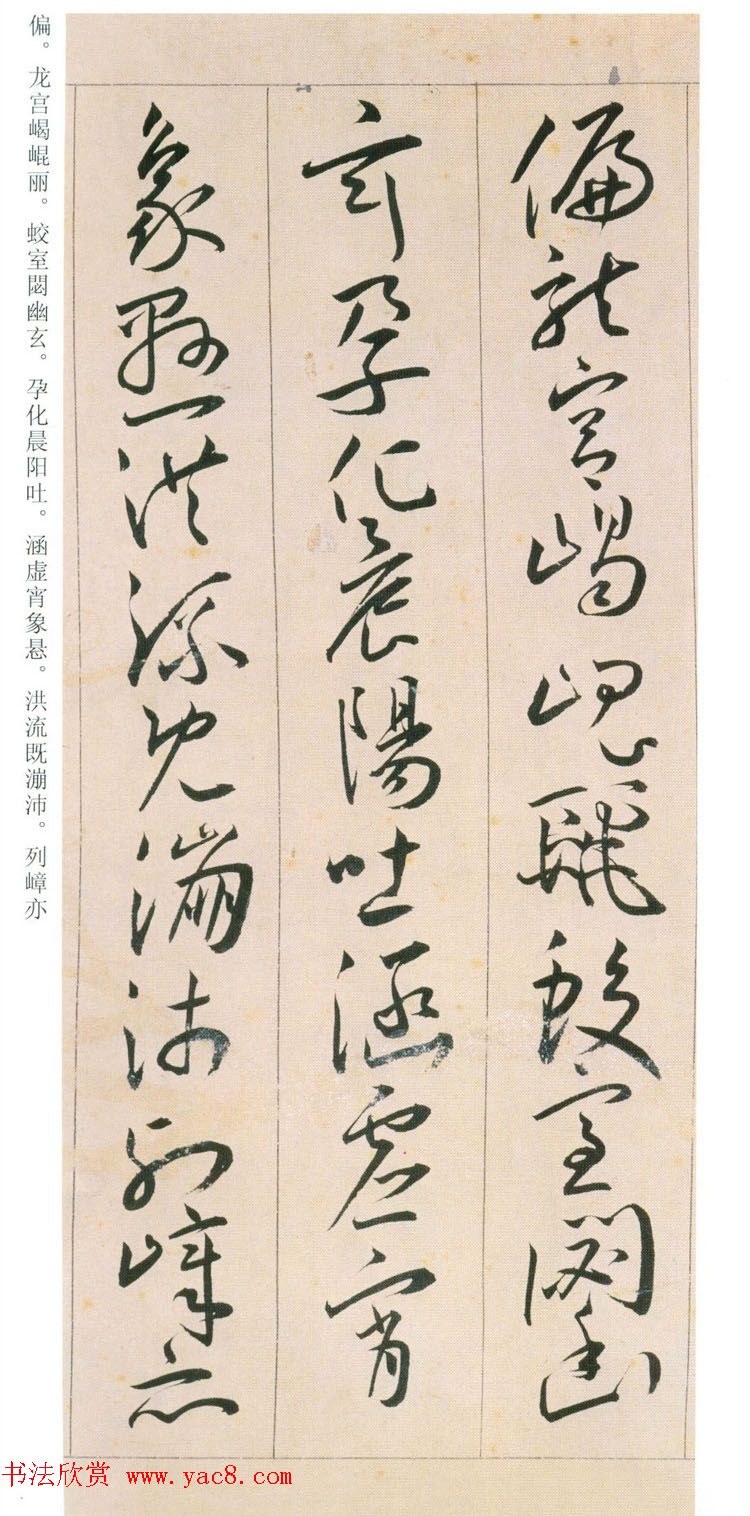 偏龙宫嵑崐丽蛟室閟幽
玄孕化晨陽吐涵虚宵
象懸洪流既漰沛列嶂亦
偏。龙宫嵑崐丽。蛟室閟幽玄。孕化晨阳吐。涵虚宵象悬。洪流既漰沛。列嶂亦
书法欣赏 www.yac8.com